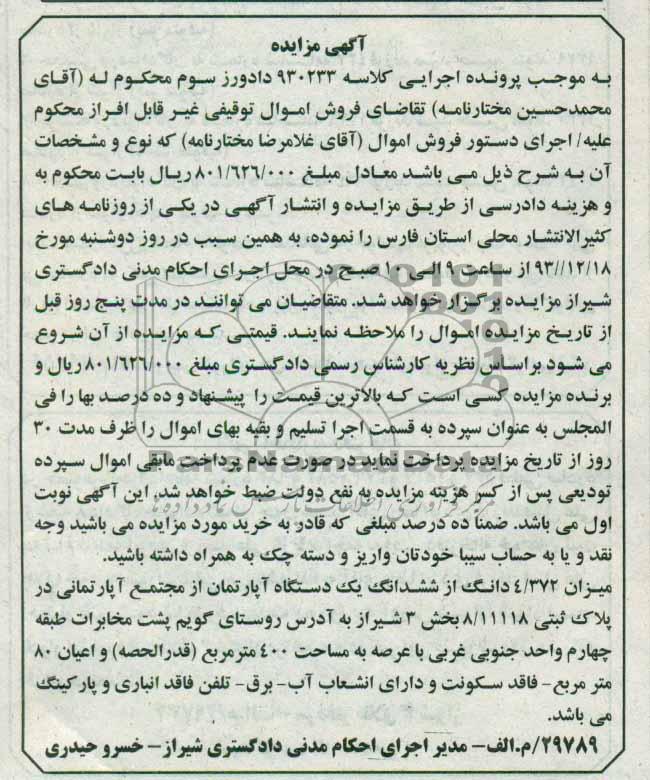 آگهی مزایده
به موجب پرونده اجرایی کلاسه ۹۳۰۲۳۳ دادورز سوم محکوم له (آقای
محمدحسین مختارنامه) تقاضای فروش اموال توقیفی غیر قابل افراز محکوم
علیه/ اجرای دستور فروش اموال (آقای غلامرضا مختارنامه) که نوع و مشخصات
آن به شرح ذیل می باشد معادل مبلغ ۸۰۱/۶۲۶/۰۰۰ ریال بابت محکوم به
و هزینه دادرسی از طریق مزایده و انتشار آگهی در یکی از روزنامه های
کثیرالانتشار محلی استان فارس را نموده، به همین سبب در روز دوشنبه مورخ
۹۳//۱۲/۱۸ از ساعت ۹ الی ۱۰ صبح در محل اجرای احکام مدنی دادگستری
شیراز مزایده برگزار خواهد شد. متقاضیان می توانند در مدت پنج روز قبل
از تاریخ مزایده اموال را ملاحظه نمایند. قیمتی که مزایده از آن شروع
می شود براساس نظریه کارشناس رسمی دادگستری مبلغ ۸۰۱/۶۲۶/۰۰۰ ریال و
برنده مزایده کسی است که بالاترین قیمت را پیشنهاد و ده درصد بها را فی
المجلس به عنوان سپرده به قسمت اجرا تسلیم و بقیه بهای اموال را ظرف مدت ۳۰
روز از تاریخ مزایده پرداخت نماید در صورت عدم پرداخت مابقی اموال سپرده
تودیعی پس از کسر هزینه مزایده به نفع دولت ضبط خواهد شد. این آگهی نوبت
اول می باشد. ضمناً ده درصد مبلغی که قادر به خرید مورد مزایده می باشید وجه
نقد و یا به حساب سیبا خودتان واریز و دسته چک به همراه داشته باشید.
میزان ۴/۳۷۲ دانگ از ششدانگ یک دستگاه آپارتمان از مجتمع آپارتمانی در
پلاک ثبتی ۸/۱۱۱۱۸ بخش ۳ شیراز به آدرس روستای گویم پشت مخابرات طبقه
چهارم واحد جنوبی غربی با عرصه به مساحت ۴۰۰ مترمربع (قدرالحصه) و اعیان ۸۰
متر مربع- فاقد سکونت و دارای انشعاب آب- برق- تلفن فاقد انباری و پارکینگ
می باشد.
۲۹۷۸۹/م.الف- مدیر اجرای احکام مدنی دادگستری شیراز- خسرو حیدری
ParsNamadData